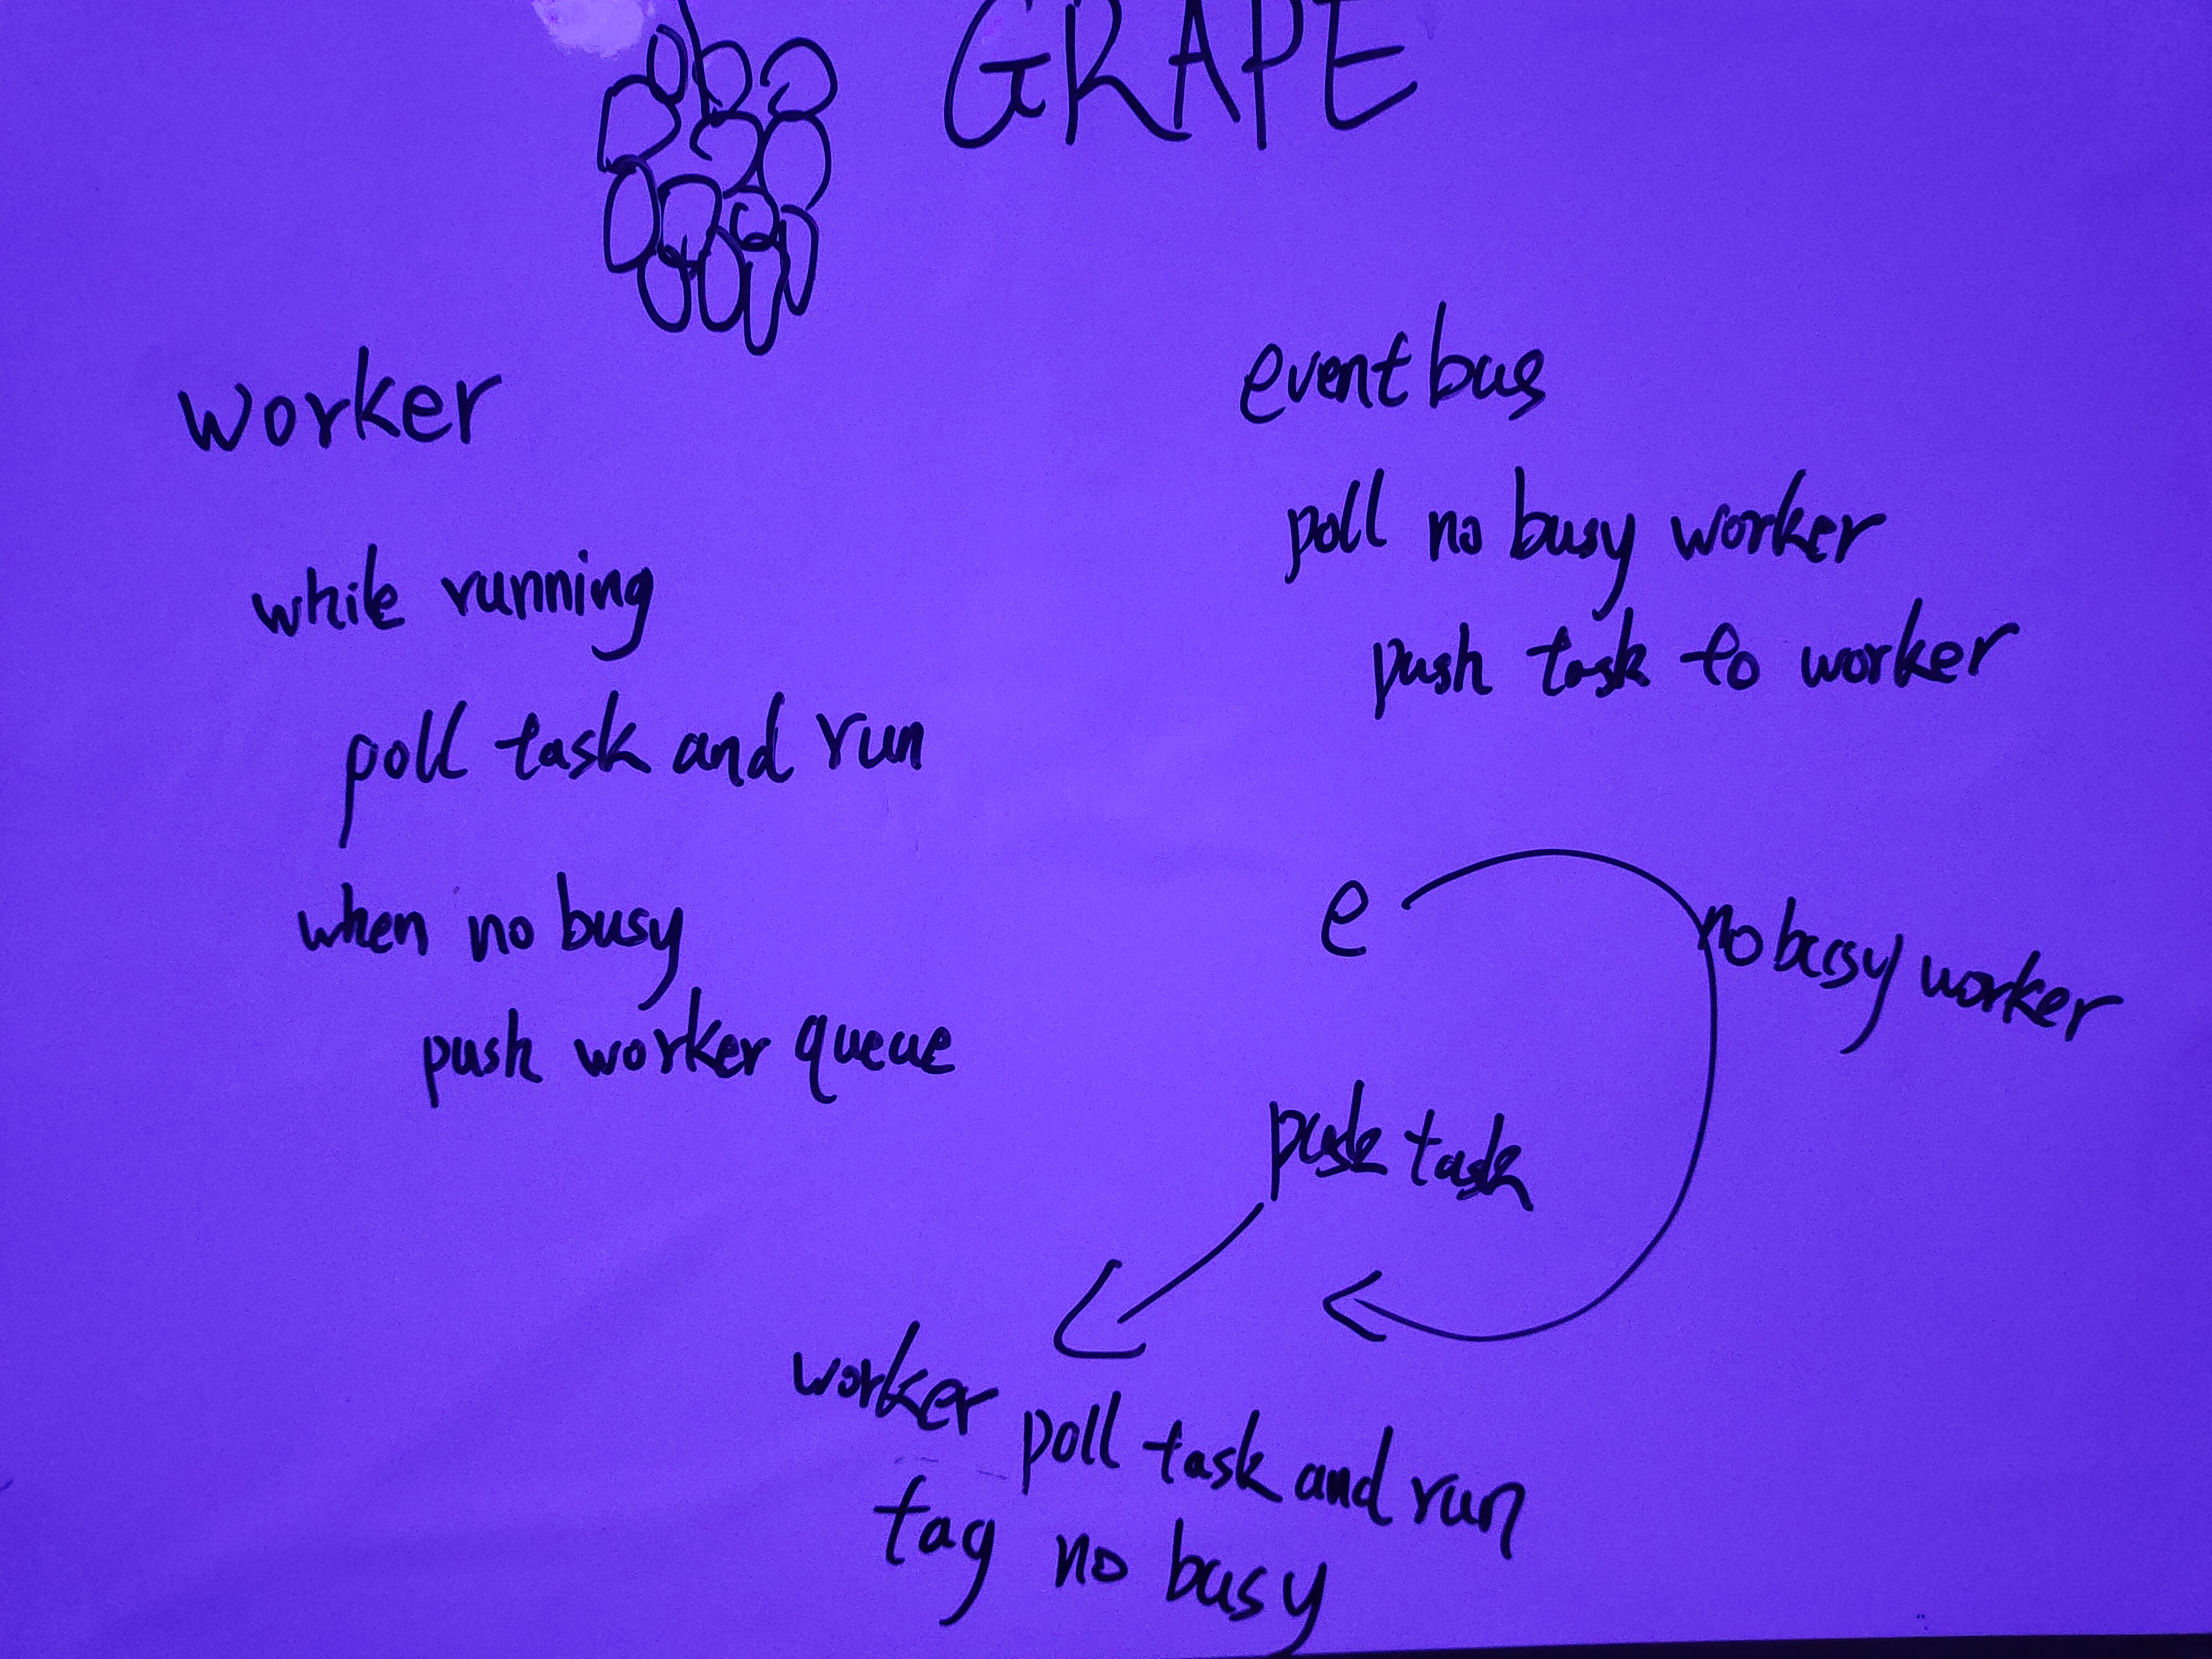 GRAPE
worker
while running
poll task and run
when no busy
push worker queue
eventbus
poll no busy worker
push task to worker
e
no busy worker
push task
worker poll task and run
tag no busy